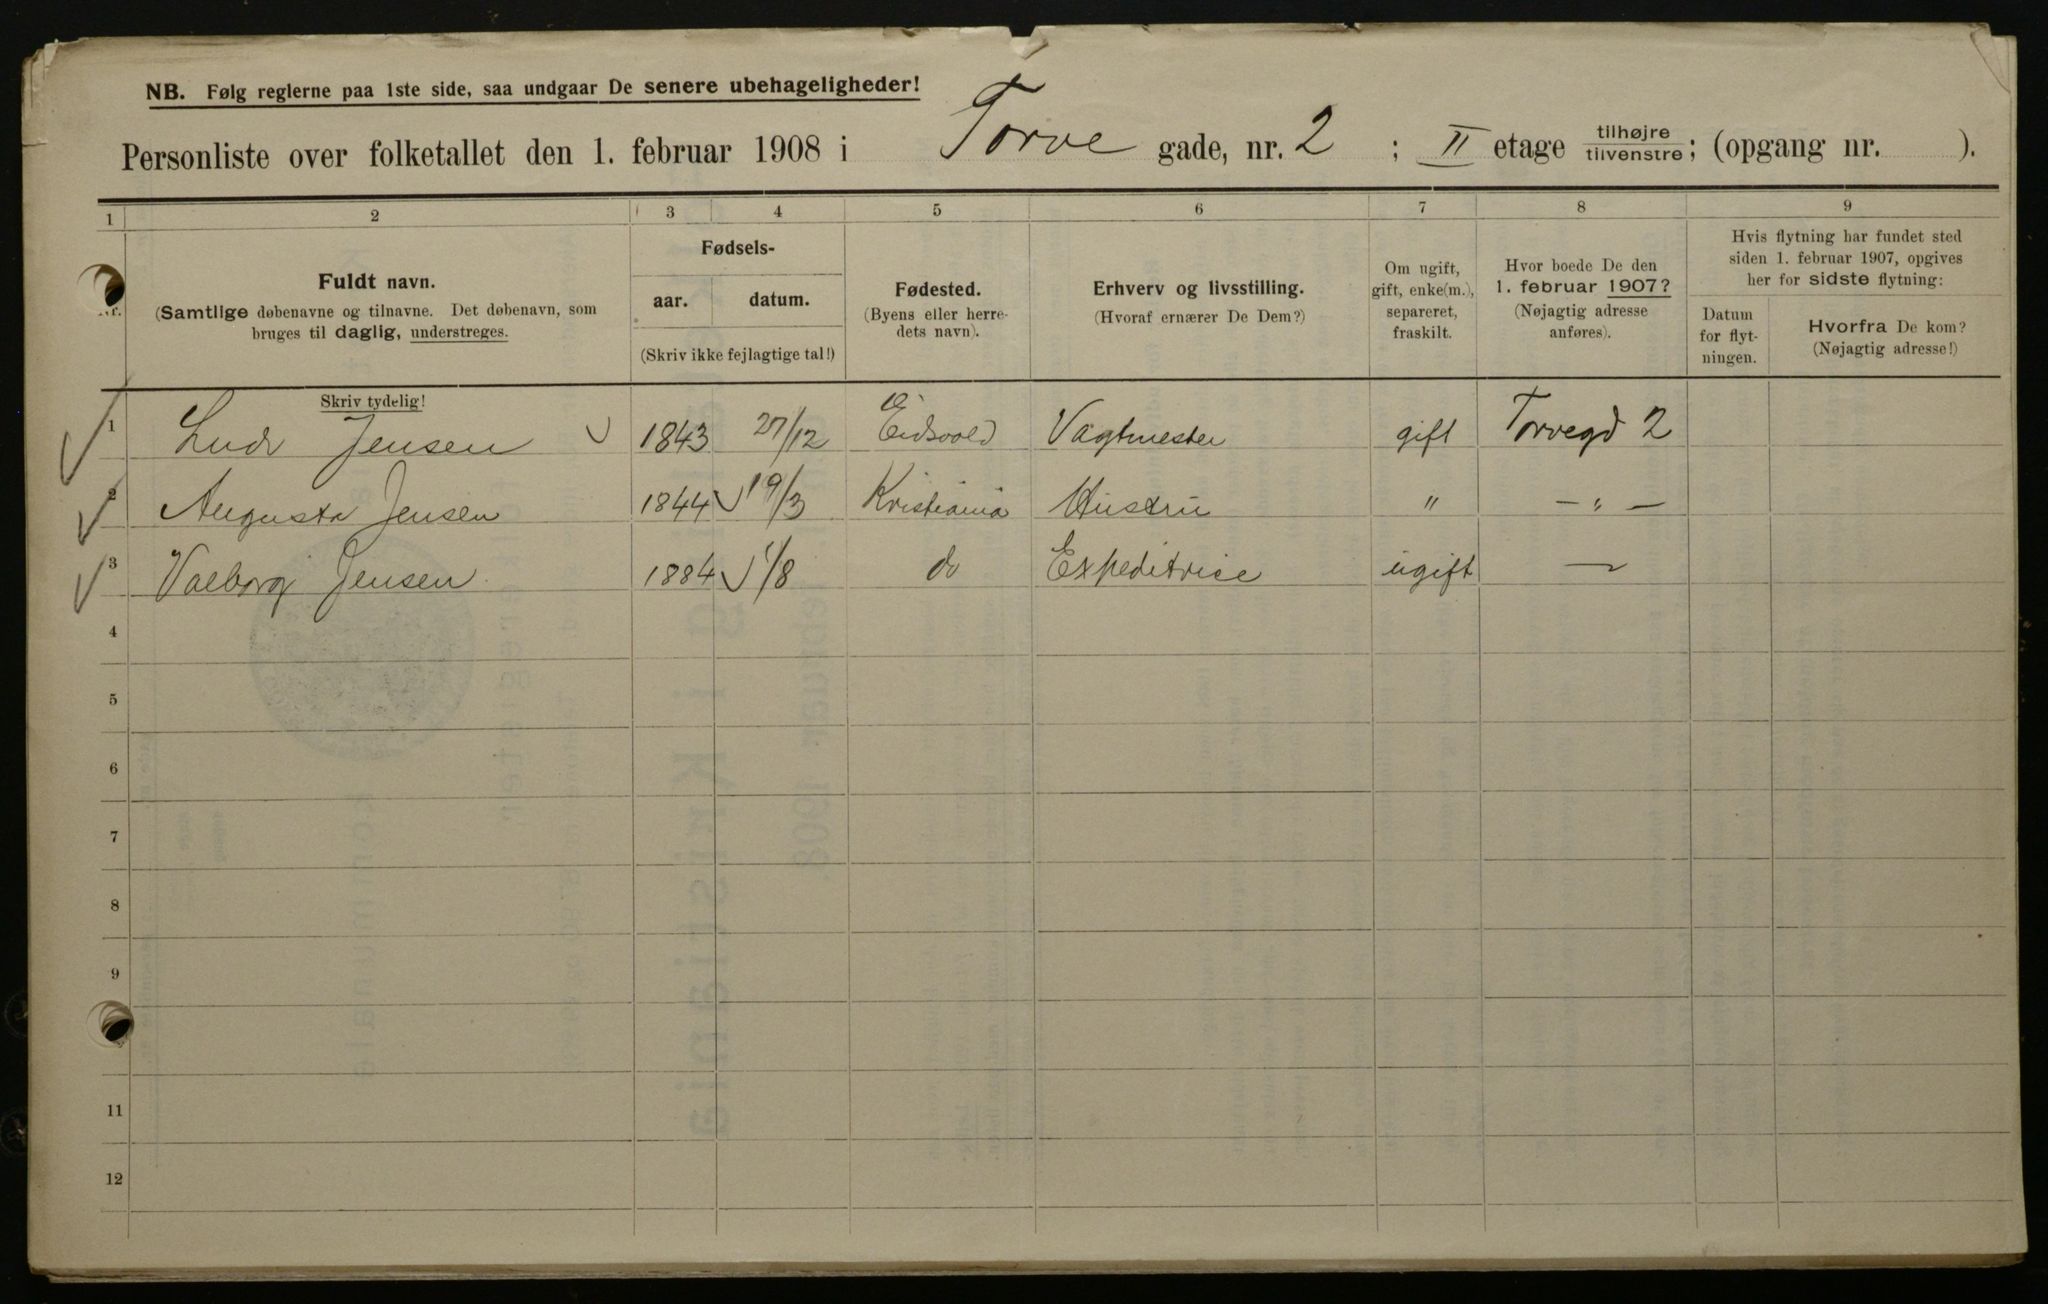 NB. Følg reglerne paa 1ste side, saa undgaar De senere ubehageligheder!
Personliste over folketallet den 1. februar 1908 i Torve gade, nr. 2 ; II etage tilhøjre/tilvenstre; (opgang nr. ).
1 2 3 4 5 6 7 8 9
Nr.
Fuldt navn.
(Samtlige døbenavne og tilnavne. Det døbenavn, som
bruges til daglig, understreges.
Skriv tydelig!
Fødsels-
aar. datum.
(Skriv ikke fejlagtige tal!)
Fødested.
(Byens eller herre-
dets navn).
Erhverv og livsstilling.
(Hvoraf ernærer De Dem?)
Om ugift,
gift, enke(m.),
separeret,
fraskilt.
Hvor boede De den
1. februar 1907?
(Nøjagtig adresse
anføres).
Hvis flytning har fundet sted
siden 1. februar 1907, opgives
her for sidste flytning:
Datum
for flyt-
ningen.
Hvorfra De kom?
(Nøjagtig adresse!)
1 Ludv Jensen 1843 27/12 Eidsvold Vagtmester gift Torvegd 2
2 Augusta Jensen 1844 19/3 Kristiania Hustru " — " —
3 Valborg Jensen 1884 1/8 do Expeditrice ugift —
4
5
6
7
8
9
11
12